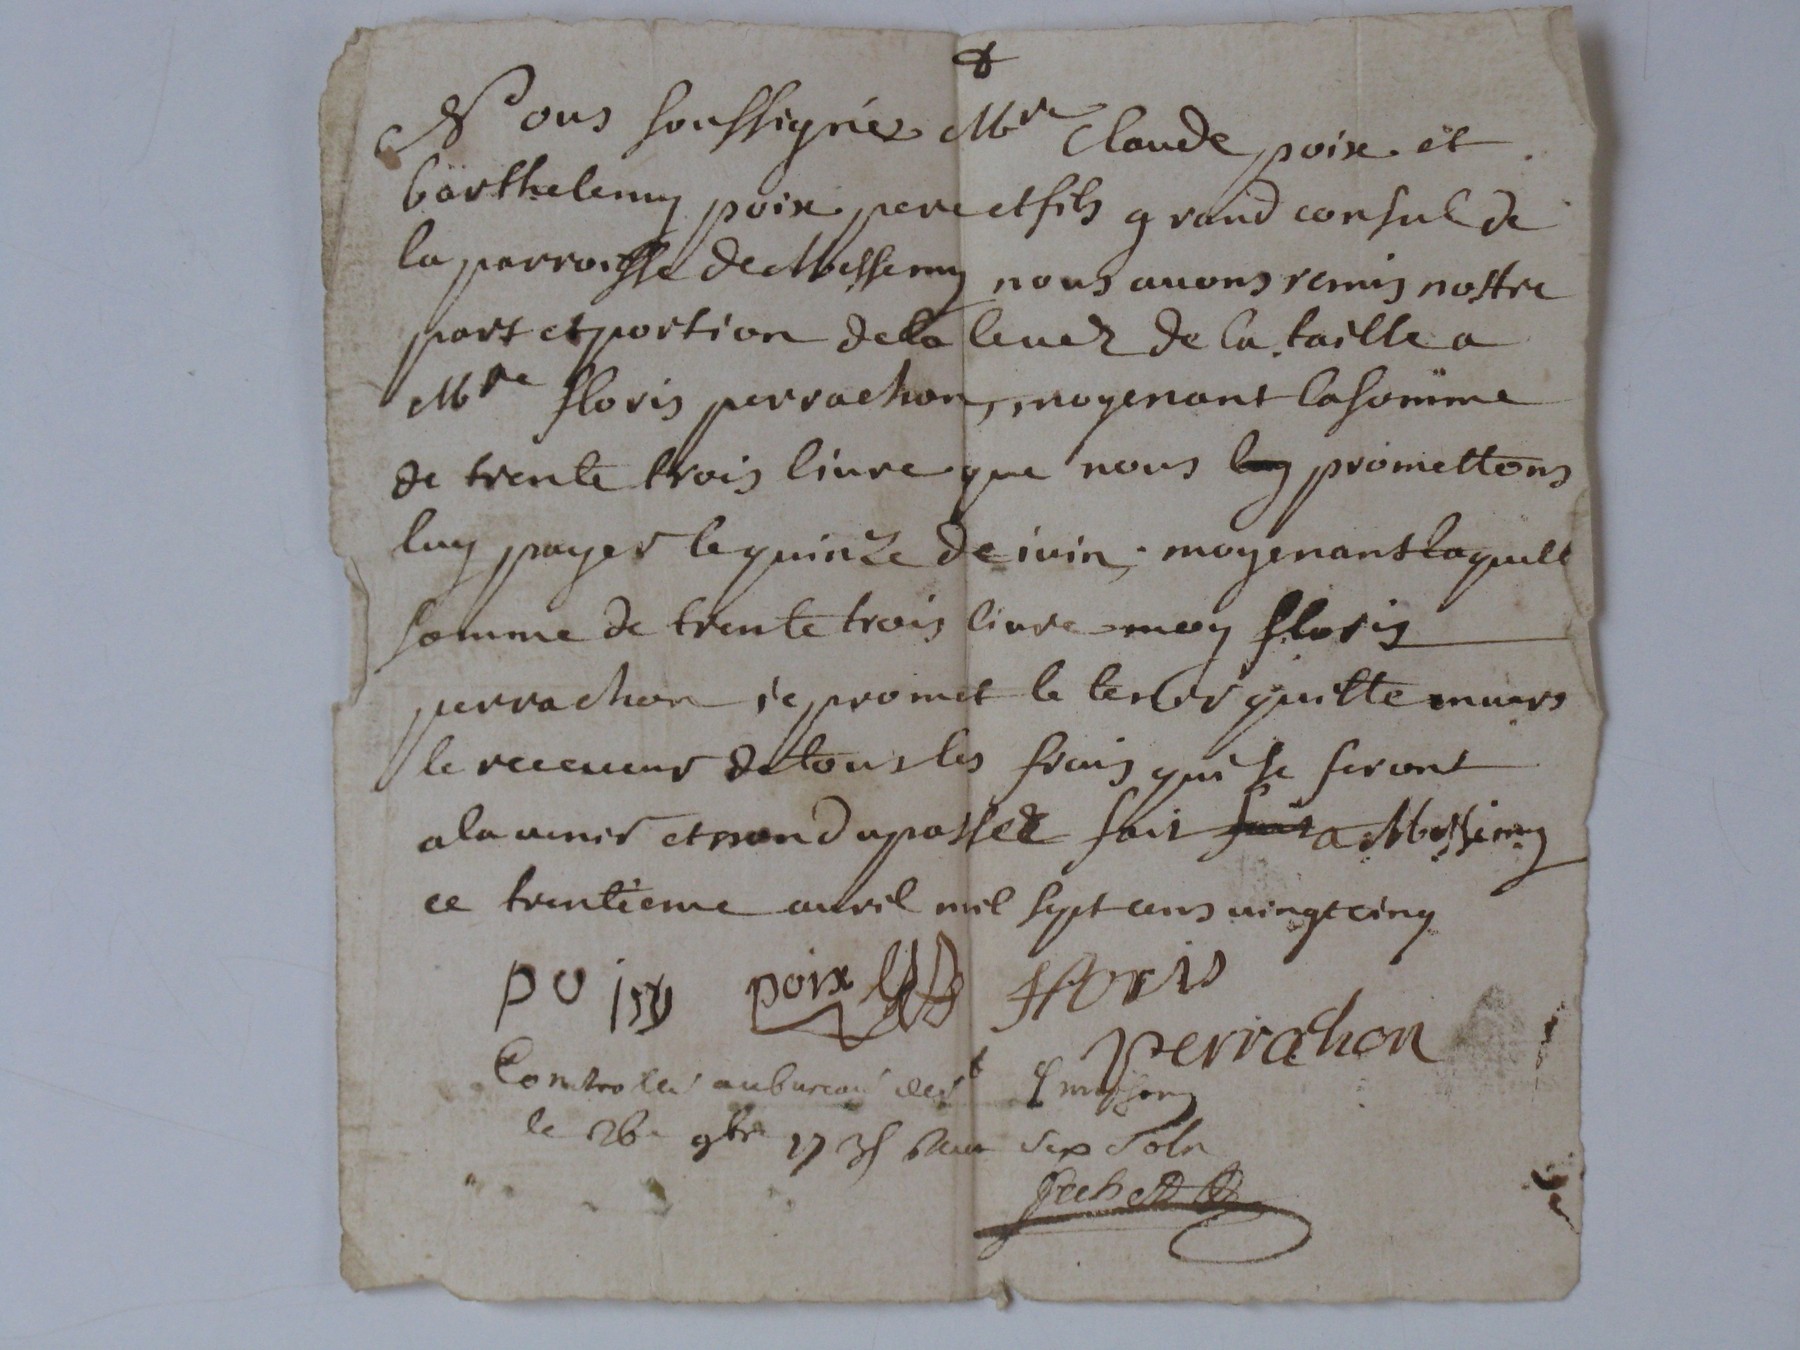 Nous soussignez Mre Claude poix et
barthelemy poix pere et fils grand consul de
la parroisse de Messemy nous avons remis nostre
part et portion de la levez de la taille a
Mre floris perrachon, moyenant la somme
de trente trois livre que nous luy promettons
luy payer le quinze de iuin, moyenant laquelle
somme de trente trois livre moy floris
perrachon ie promet le tenir quitte envers
le receveur de tous les frais qui se feront
a lavenir et non du passez fait fait a Messimy
ce trentieme avril mil sept cens vingt cinq
poix poix floris
perrachon
Controlle au bureau de St
le 26 9bre 1725 six sols